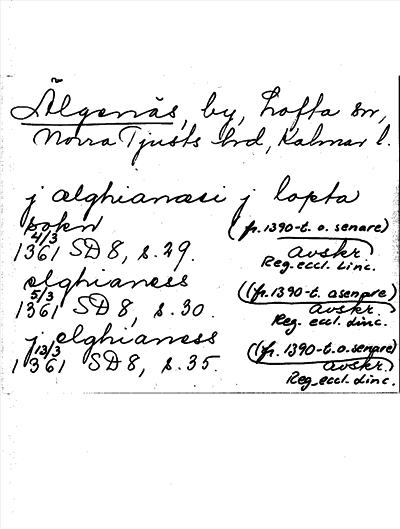 Älgenäs, by, Lofta sn,
Norra Tjusts hrd, Kalmar l.
j ælghianæsi j lopta
sokn (fr. 1390-t. o. senare)
4/3 avskr.
1361 SD 8, s. 29. Reg. eccl. Linc.
elghianess
5/3 ((fr. 1390-t. o senare)
1361 SD 8, s. 30. avskr.
Reg. eccl. Linc.
j elghianess
13/3 ((fr. 1390-t. o. senare)
1361 SD 8, s. 35. avskr.
Reg. eccl. Linc.